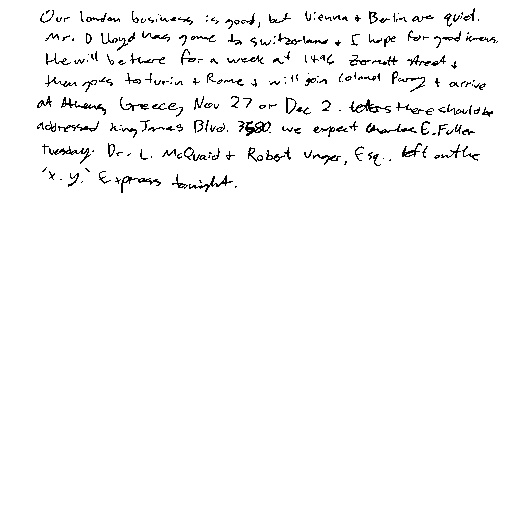 Our london business is good, but Vienna + Berlin are quiet.
Mr. D Lloyd has gone to Switzerland + I hope for good news.
He will be there for a week at 1496 Zermott Street +
then goes to turin + Rome + will join Colonel Parry + arrive
at Athens, Greece, Nov 27 or Dec 2. letters there should be
addressed King James Blvd. 3580. we expect Charles E. Fuller
tuesday. Dr. L. McQuaid + Robert Unger, Esq., left on the
'x.y.' Express tonight.